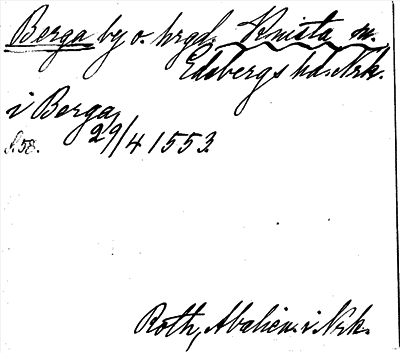 Berga by o. hrgd. Knista sn.
Edsbergs hd. Nrk.
i Berga
S. 58. 29/4 1553.
Roth, Abalien. i Nrk.